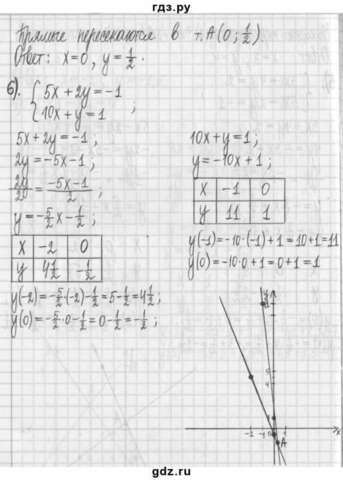 гдз.ру
Прямые пересекаются в т. A(0; 1/2).
Ответ: x=0, y=1/2.
б). { 5x+2y=-1
10x+y=1 ;
5x+2y=-1;
2y=-5x-1;
2y/20 = (-5x-1)/2;
y=-5/2x-1/2;
x -2 0
y 4 1/2 -1/2
y(-2)=-5/2·(-2)-1/2=5-1/2=4 1/2;
y(0)=-5/2·0-1/2=0-1/2=-1/2;
10x+y=1;
y=-10x+1;
x -1 0
y 11 1
y(-1)=-10·(-1)+1=10+1=11
y(0)=-10·0+1=0+1=1
y
-2 -1 0 1 x
A
gdz.ru